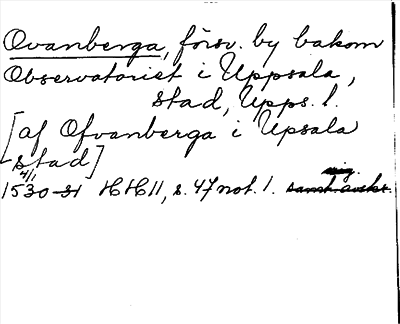 Ovanberga, försv. by bakom
Observatoriet i Uppsala,
stad, Upps. l.
[af Ofvanberga i Upsala
stad]
4/1
1530-31 HH11, s. 47 not. 1.